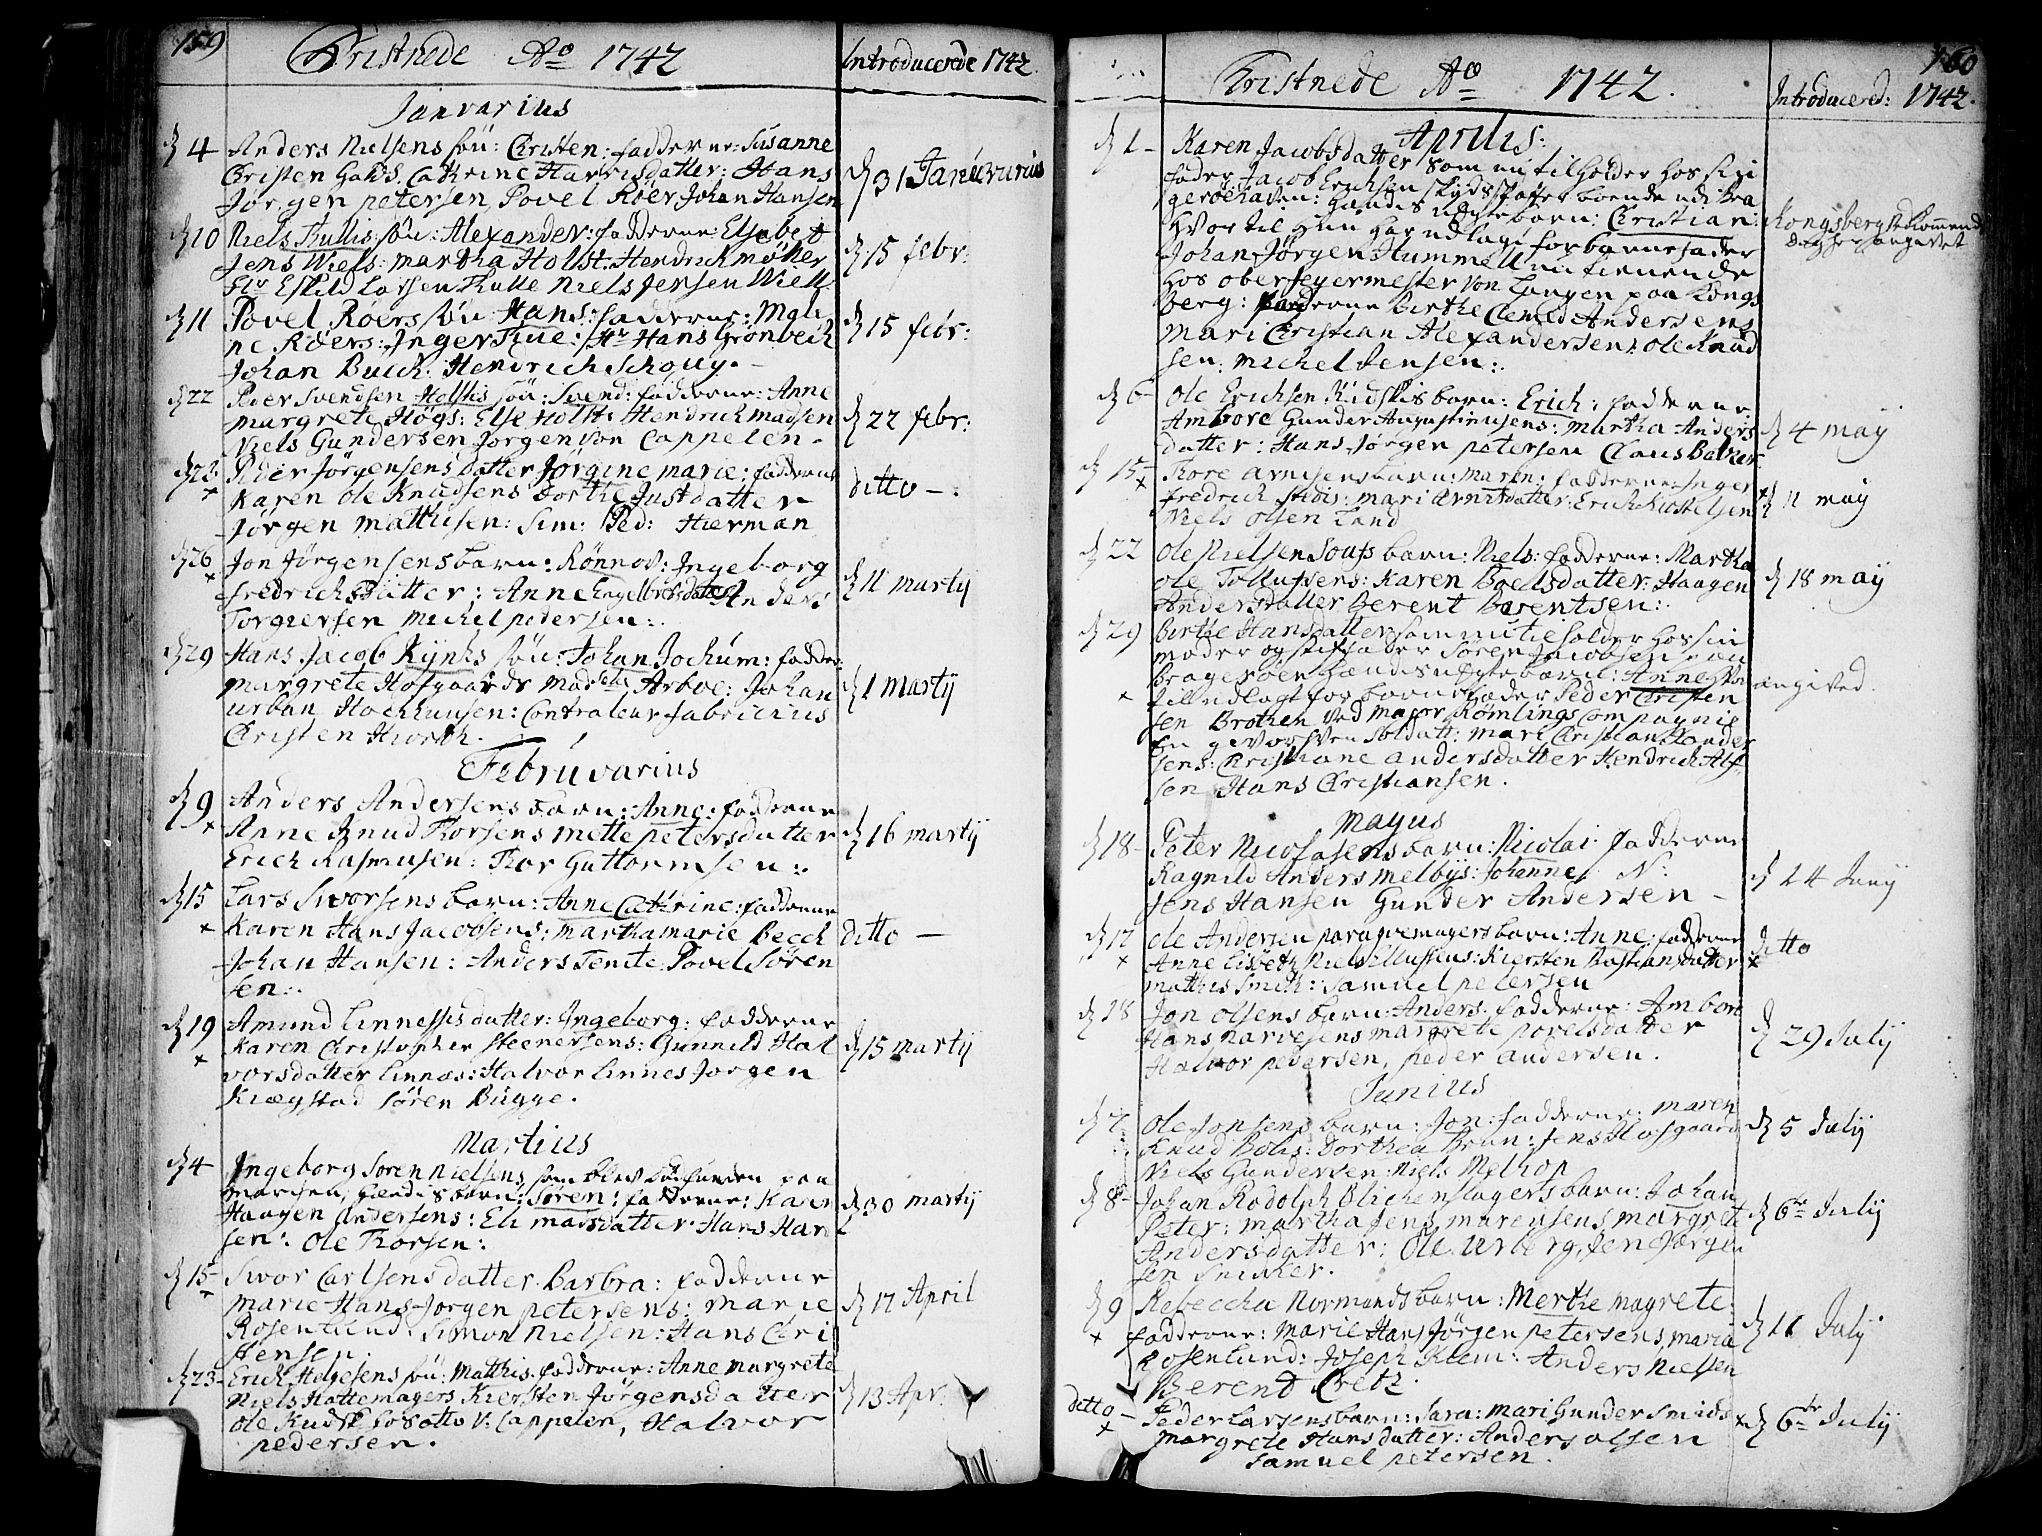 159
Christnede Ao 1742
Introducerede 1742.
Janvarius
d 4 Anders Nielsens søn: Christen: fadderne: Susanne
Christen Cathrine Harrisdatter: Hans
Jørgen petersen, Povel Röer Johan Hansen
d 31 Janúvarius
d 10 Niels Thullis søn: Alexander: fadderne: Elsebet
Jens Wiels: martha Holst. Hendrich møller
Eskild Larsen Thulle Niels Jensen Wiell.
d 15 febr:
d 11 Povel Röers søn Hans: fadderne: Mali
ne Röers: Inger Hr Hans Grönbech
Johan Buch: Hendrich Schouy.
d 15 febr:
d 22 Peter Svendsen Holstis søn: Svend: fadderne: Anne
margrete Högs: Else Holst: Hendrich madsen
Niels Gundersen Jørgen von Cappelen.
d 22 febr:
d 23 Peder Jörgensens datter Jörgine marie: fadderne
x Karen Ole Knudsens Dorthe Justdatter
Jörgen matthisen: Sim: Ped: Hierman
ditto —.
d 26 Jon Jørgensens barn: Rönnov: Ingeborg
x fredrichs datter: Anne Engelbretsdatter Anders
Torgiersen michel pedersen:.
d 11 martij
d 29 Hans Jacob Kynhs søn: Johan Jochum: fadder:
margrete Hofgaards Arboe: Johan
urban Stochhunsen: Contraleur fabricius
Christen Hiorth.
d 1 martij
Februvarius
d 9 Anders Andersens barn: Anne: fadderne
x Anne Knud Thorsens mette petersdatter
Erich Rasmusen: Thor Guttormsen:.
d 16 martij
d 15 Lars Sworsens barn: Anne Cathrine: fadderne
x Karen Hans Jacobsens: marthamarie Becch
Johan Hansen: Anders Povel Søren
sen:.
ditto —
d 19 Amund Linnessis datter: Ingeborg: fadderne
x Karen Christopher Steenersens: Gunnild Hal
vorsdatter Linnæs: Halvor Linnes Jorgen
Kiægstad søren Bugge.
d 15 martij
Martius
d 4 Ingeborg Soren Nielsens som blev paa
marchen, hændis barn: Søren: fadderne: Karen
Haagen Andersens: Eli madsdatter Hans Han
sen: Ole Thorsen:.
d 30 martij
d 15 Swor Carlsens datter Barbra: fadderne
x marie Hans Jorgen petersens: marie
Rosenlund. Simon Nielsen: Hans Chri
stensen.
d 17 April
d 23 Erich Helgesens søn: Matthis. fadderne: Anne margrete
Niels Hattemagers Kiersten Jörgensdatter
Ole Kudsk hos otto v: Cappelen, Halvor
pedersen.
d 13 Apr:
160
Christnede Ao 1742.
Introducered: 1742.
Aprilis:
d 1 Karen Jacobsdatter som nu tilholder hos sin
fader Jacob Erichsen skydsskaffer boende udi Bra
geröehafen: hændis uegte barn: Christian:
hvortil hun har udlagt for barnefader
Johan Jørgen Hummell nu tienende
hos oberjegermester von Langen paa Kongs
berg: fadderne Birthe Clemed Andersens
mari Christian Alexandersens: ole Knud
sen: michel Jensen:.
Kongsberg
angivet
d 6 Ole Erichsen Kudskis barn: Erich: fadderne
Ambore Gunder Augustinusens: martha Anders
datter: Hans Jørgen petersen Claus Balcher
d 4 may
d 15 Thore Arnesens barn: maren: fadderne: Inger
x fredrich Stidis: mari Arnisdatter. Erich Kiostelsen
Niels olsen Land
d 11 may
d 22 Ole Nielsen Soufs barn: Niels: fadderne: Martha
ole Tollufsens: Karen Boelsdatter: Haagen
Andersdatter Berent Berentsen:.
d 18 may
d 29 Birthe Hansdatter som nu tilholder hos sin
moder og stiffader Søren Jacobsen paa
bragerøen hændis uegte barn: Anne
x till udlagt for barne fader Peder Christen
sen Brothen ved major Römlings Compagnie
en gevorfven soldatt: mari Christian
sens: Christiane andersdatter Hendrich
sen Hans Christiansen.
angived.
Mayus
d 18 Peter Nicolasens barn: Nicolai: fadderne
Ragnild Anders melbys: Johanne N:
Jens Hansen Gunder Andersen
d 24 Junij
d 17 ole Andersen paraquemagers barn: Anne: fadderne
x Anne Lisbeth Niels Ellufsens: Kiersten Bastiansdatter
matthis Smith: Samuel petersen
ditto
x
d 18 Jon olsens barn: Anders. fadderne: Ambore
Hans Narvesens margrete povelsdatter
Halvor pedersen, peder andersen.
d 29 Julij
Junius
d 7 Ole Jonsens barn: Jon: fadderne: maren
Knud Bolis: Dorthea Brun: Jens Hofgaard
Niels Gundersen: Niels Melhop
d 5 Julij
d 8 Johan Rodolph Blichenslagers barn: Johan
Peter: martha Jens marensens margrete
Andersdatter: Ole Urberg, Jen Jørgen
sen Snikker.
d 6te Julij
d 9 Rebeccha Normands barn: Merthe magrete:
x fadderne: marie Hans Jørgen petersens, maria
Rosenlund: Joseph Klem: Anders Nielsen
Berent Cretz.
d 11 Julij
ditto Peder Larsens barn: Sara: mari Gunder Smids
x margrete Hansdatter: Anders olsen
Samuel petersen.
x d 6te Julij